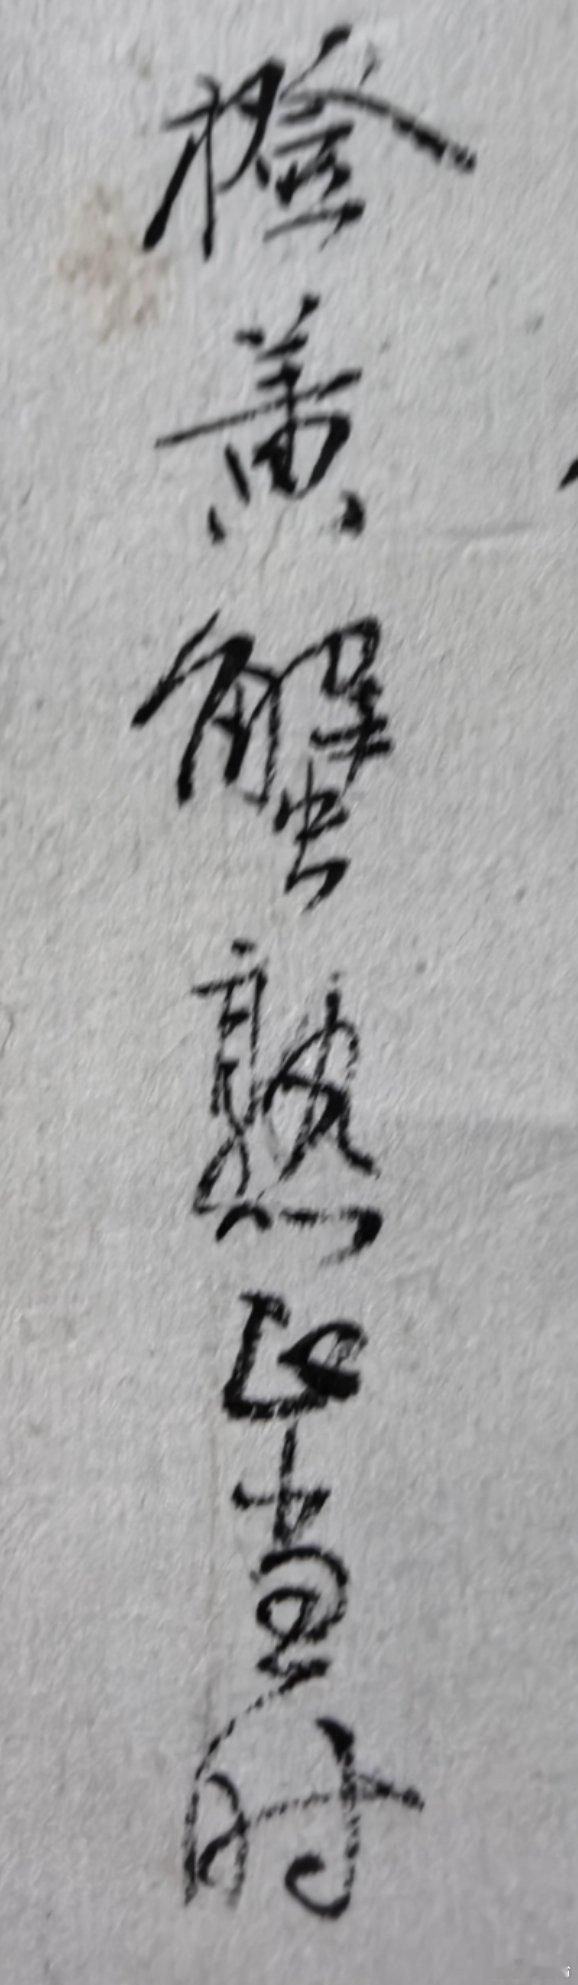 橙黄蟹熟正當时